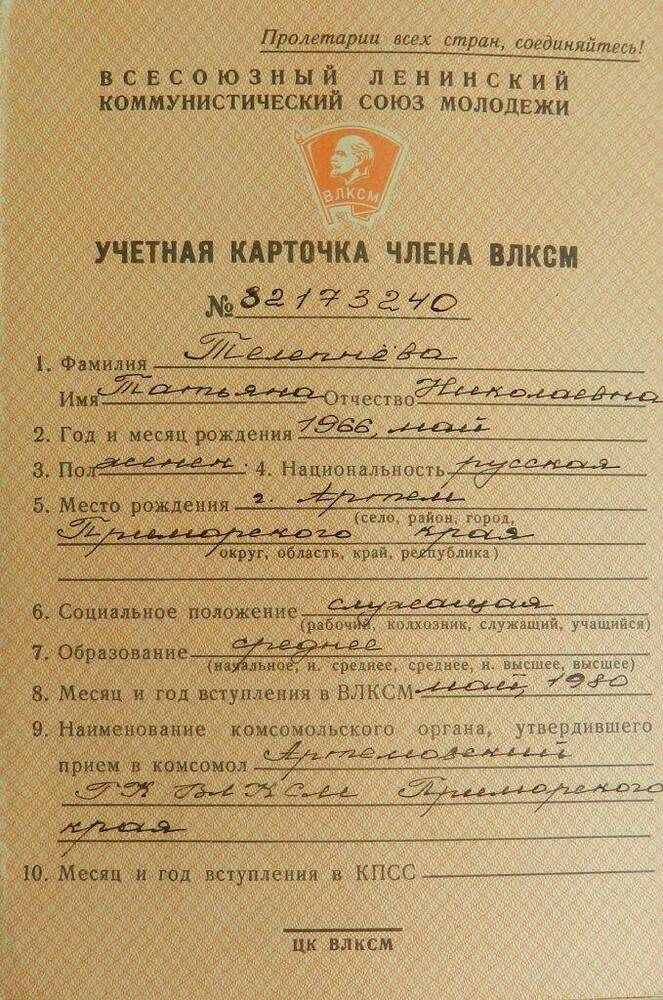 Пролетарии всех стран, соединяйтесь!
ВСЕСОЮЗНЫЙ ЛЕНИНСКИЙ
КОММУНИСТИЧЕСКИЙ СОЮЗ МОЛОДЕЖИ
ВЛКСМ
УЧЕТНАЯ КАРТОЧКА ЧЛЕНА ВЛКСМ
№ 82173240
1. Фамилия Телепнёва
Имя Татьяна Отчество Николаевна
2. Год и месяц рождения 1966, май
3. Пол женск. 4. Национальность русская
5. Место рождения г. Артем
(село, район, город,
Приморского края
округ, область, край, республика)
6. Социальное положение служащая
(рабочий, колхозник, служащий, учащийся)
7. Образование среднее
(начальное, н. среднее, среднее, н. высшее, высшее)
8. Месяц и год вступления в ВЛКСМ май, 1980
9. Наименование комсомольского органа, утвердившего
прием в комсомол Артемовский
ГК ВЛКСМ Приморского
края
10. Месяц и год вступления в КПСС
ЦК ВЛКСМ